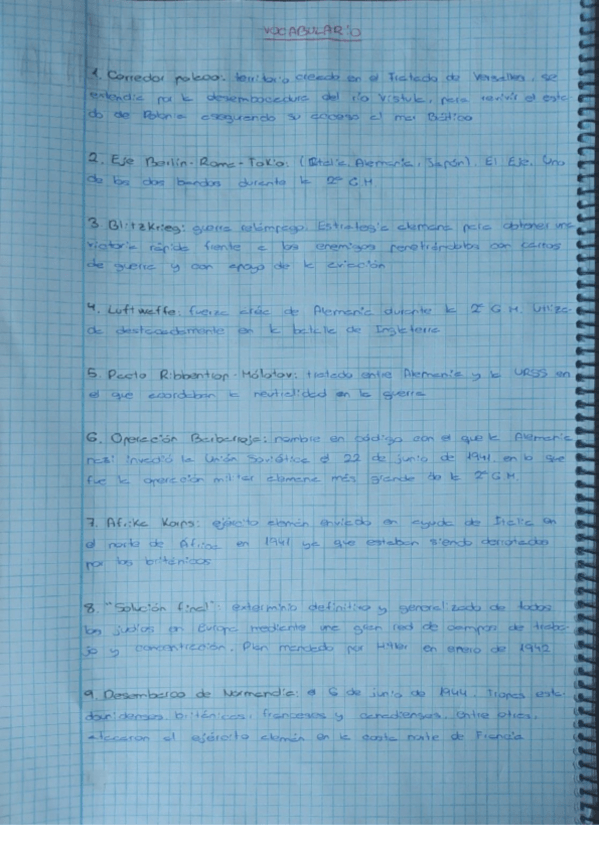 VOCABULARIO
1. Corredor polaco: territorio creado en el Tratado de Versalles, se
extendía por la desembocadura del río Vístula, para revivir el esta-
do de Polonia asegurando su acceso al mar Báltico
2. Eje Berlín-Roma-Tokio: (Italia, Alemania, Japón). El Eje. Uno
de los dos bandos durante la 2ª G.H.
3. Blitzkrieg: guerra relámpago. Estrategia alemana para obtener una
victoria rápida frente a los enemigos penetrándolos con carros
de guerra y con apoyo de la aviación
4. Luftwaffe: fuerza aérea de Alemania durante la 2ª G.H. Utiliza-
da destacadamente en la batalla de Inglaterra
5. Pacto Ribbentrop-Mólotov: tratado entre Alemania y la URSS en
el que acordaban la neutralidad en la guerra
6. Operación Barbarroja: nombre en código con el que la Alemania
nazi invadió la Unión Soviética el 22 de junio de 1941 en lo que
fue la operación militar alemana más grande de la 2ª G.H.
7. Afrika Korps: ejército alemán enviado en ayuda de Italia en
el norte de África en 1941 ya que estaban siendo derrotados
por los británicos
8. "Solución final": exterminio definitivo y generalizado de todos
los judíos en Europa mediante una gran red de campos de traba-
jo y concentración. Plan mandado por Hitler en enero de 1942
9. Desembarco de Normandía: el 6 de junio de 1944. Tropas esta-
dounidenses, británicas, francesas y canadienses, entre otras,
atacaron al ejército alemán en la costa norte de Francia